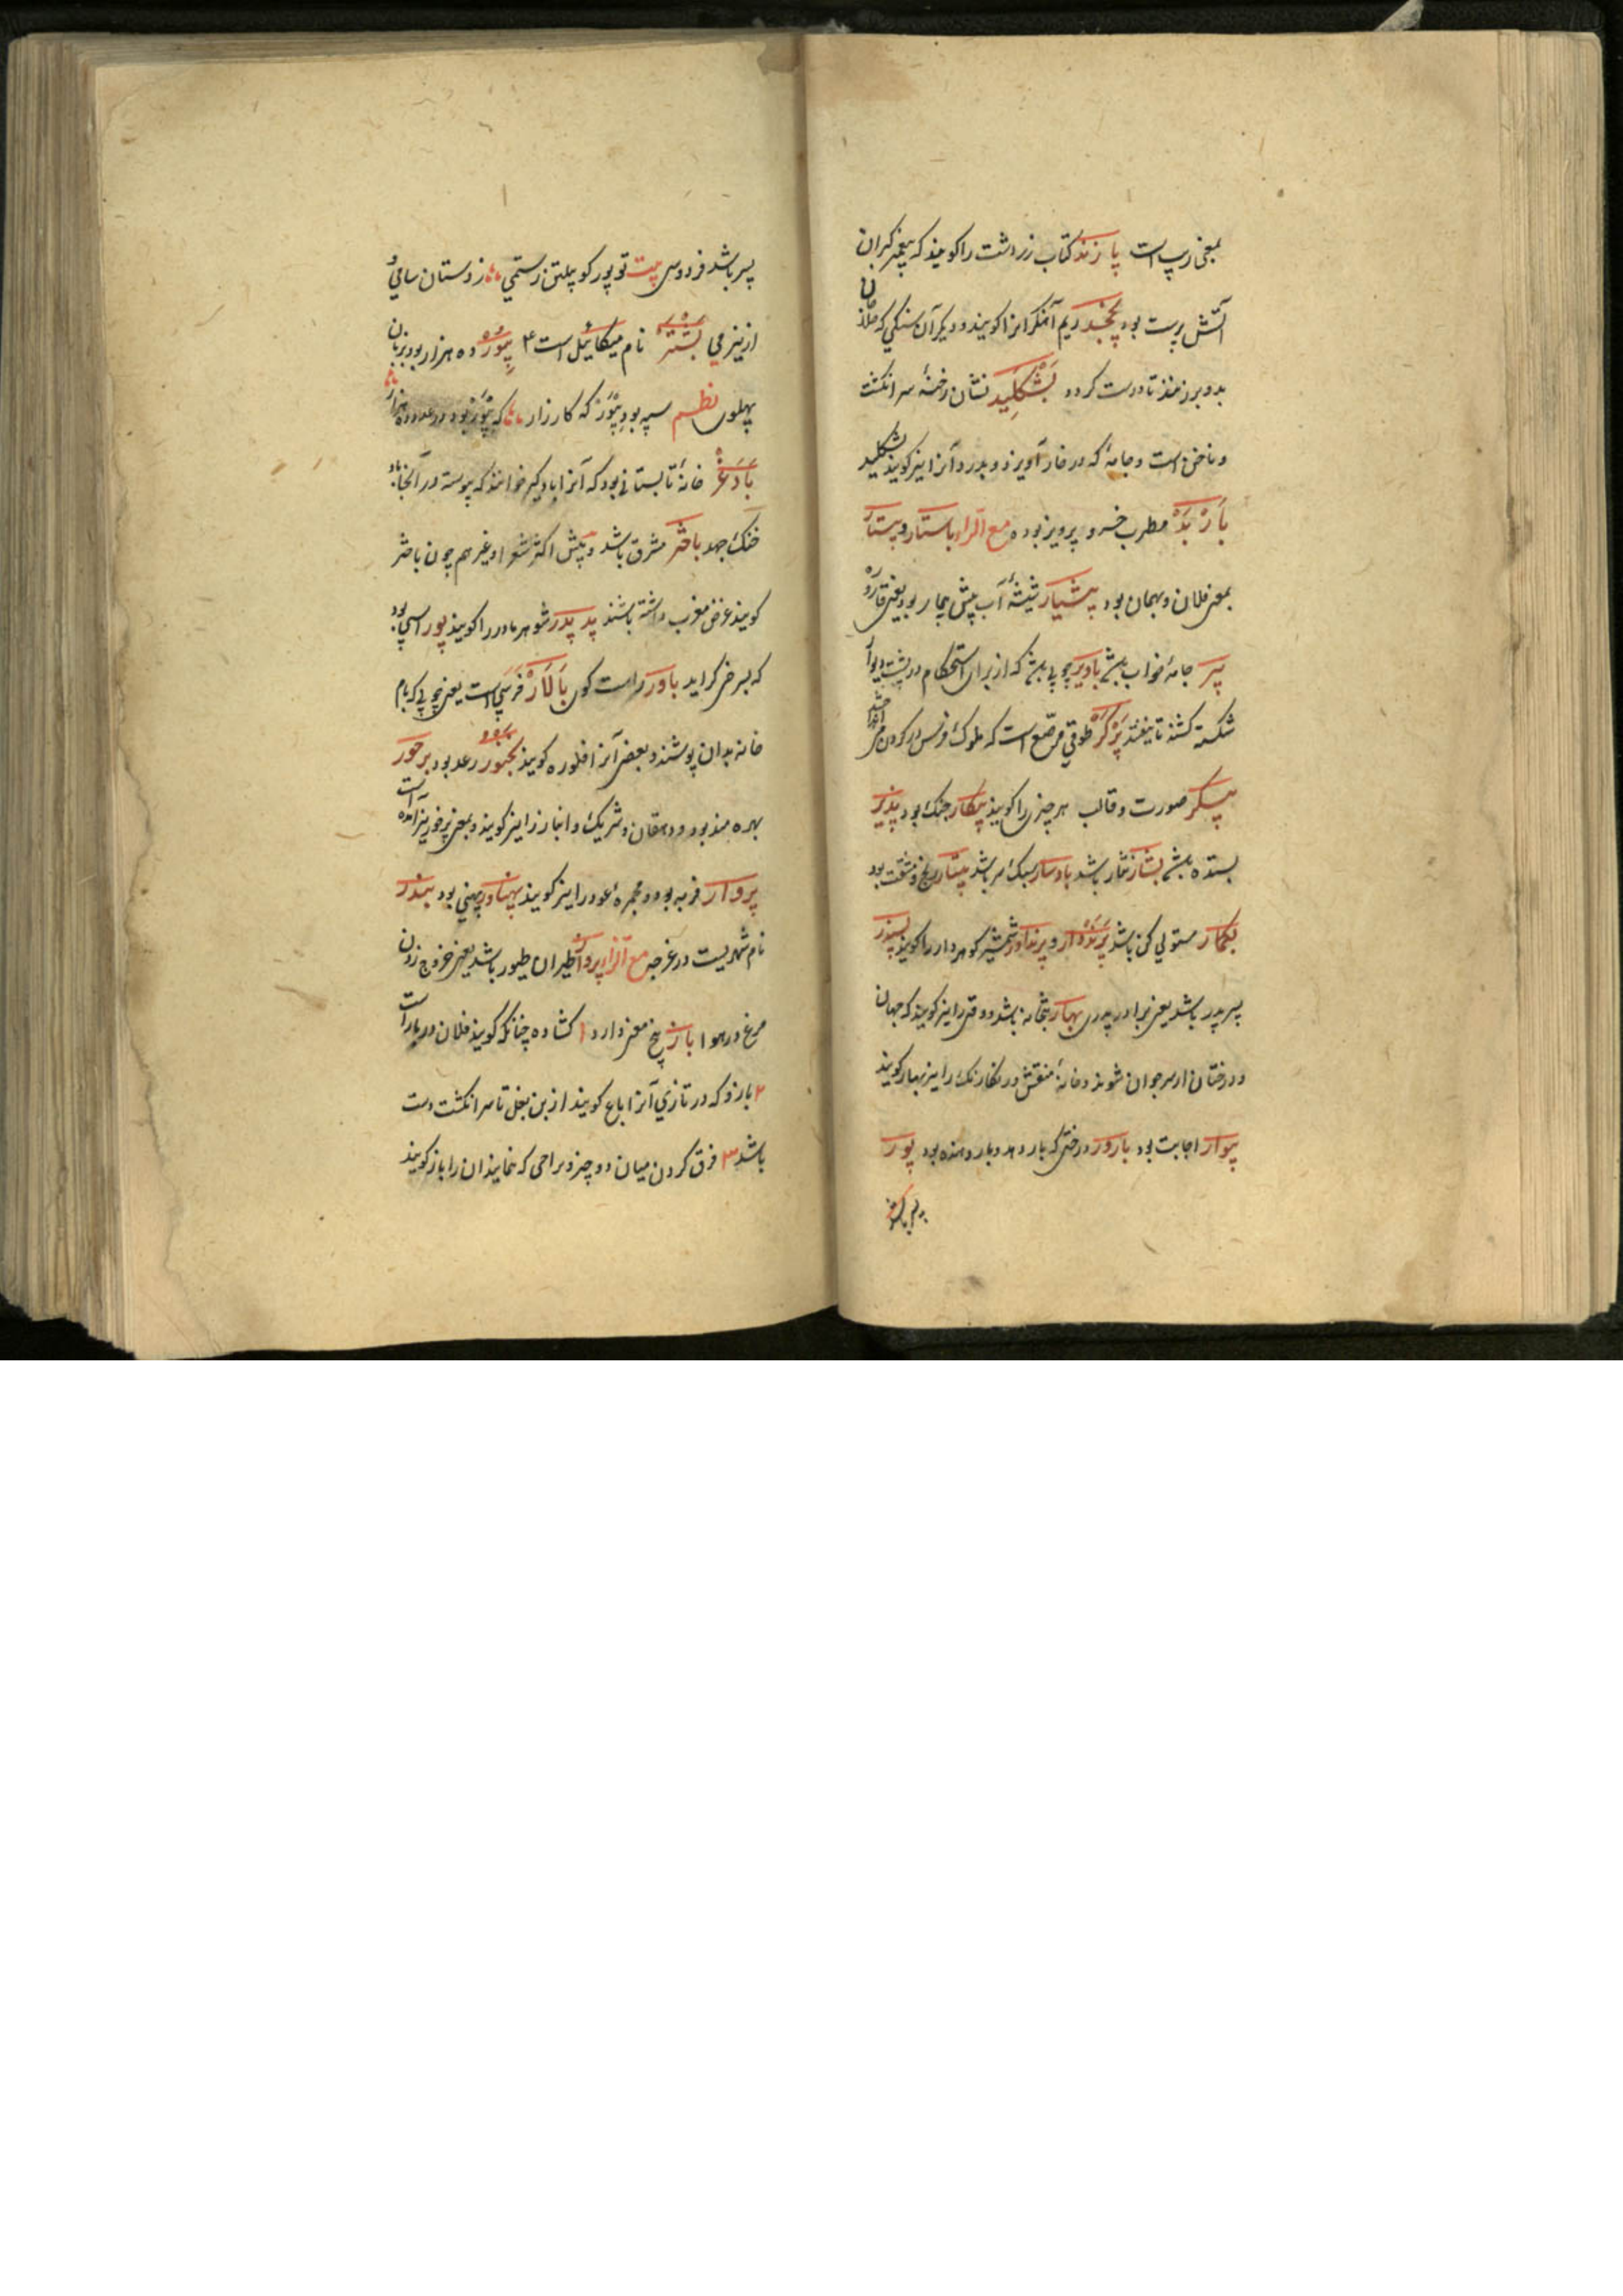 بمعنی زسپ است پازند کتاب زردشت را کویند که پیغمبر کبران
آتش پرست بود بخجد ریم آهنکر انرا کویند و دیکر آن سنکی که
بدو برزنند تا درست کردد بشکلید نشان رخنهٔ سر انکشت
و ناخن است و جامهٔ که در خار آویزد و بدرد آنرا نیز کویند بشکلید
بارْبَدْ مطرب خسرو پرویز بوده مع الراء باستار و بیستار
بمعنی فلان و بهمان بود پیشیار شیشهٔ آب پیش بیمار بود یعنی قاروره
جامهٔ خواب باشد بادیر چوبی باشد که از برای استحکام در پشت دیوار
شکسته کشند تا نیفتد پَرْکَرْ طوقی مرصّع است که ملوک فرس در کردن
پیکر صورت و قالب هر چیزی را کویند پیکار جنک بود پذیر
بستده باشد بشار نثار باشد بادسار سبک سر باشد پیتار رنج و مشقت بود
مستولی کن باشد پرنددار و پرنداور شمشیر کوهردار را کویند پسندر
پسر پدر باشد یعنی برادر پدری بهار بتخانه باشد و وقتی را نیز کویند که جهان
و درختان از سر جوان شوند و خانهٔ منقش و نکارنک را نیز بهار کویند
پیوار اجابت بود بارور درختی که بار دهد و بار دهنده بود پور
پسر باشد
پسر باشد فردوسی بیت تو پور کو پیلتن رستمی ز دستان سامی
از نیرمی بشتر نام میکائیل است بیور ده هزار بود بزبان
پهلوی نظم سپه بود بیور که کارزار که بیور بود در عدد ده هزار
بادغر خانهٔ تابستانی بود که آنرا بادکیر خوانند که پیوسته در آنجا باد
خنک جهد باختر مشرق باشد و پیش اکثر شعرا و غیر هم چون باختر
کویند غرض مغرب داشته باشند پد پدر شوهر مادر را کویند پور اسپی بود
که سرخی کراید باور راست کوی بالار فرسپی است یعنی چوبی که بام
خانه بدان پوشند و بعضی آنرا افلوره کویند بخنور رعد بود برخور
بهره مند بود و دهقان و شریک و انباز را نیز کویند و بمعنی برخور نیز آمده است
پروار فربه بود و مجمرهٔ عود را نیز کویند پهناور پهنی بود بندر
نام شهریست در غرجه مع الزاء پرواز طیران طیور باشد یعنی خروج زدن
مرغ در هوا باز پنج معنی دارد ۱ کشاده چنانکه کویند فلان در باز است
۲ بازو که در تازی آنرا باع کویند از بن بغل تا سر انکشت دست
باشد ۳ فرق کردن میان دو چیز و مراحی که نمایند ان را باز کویند